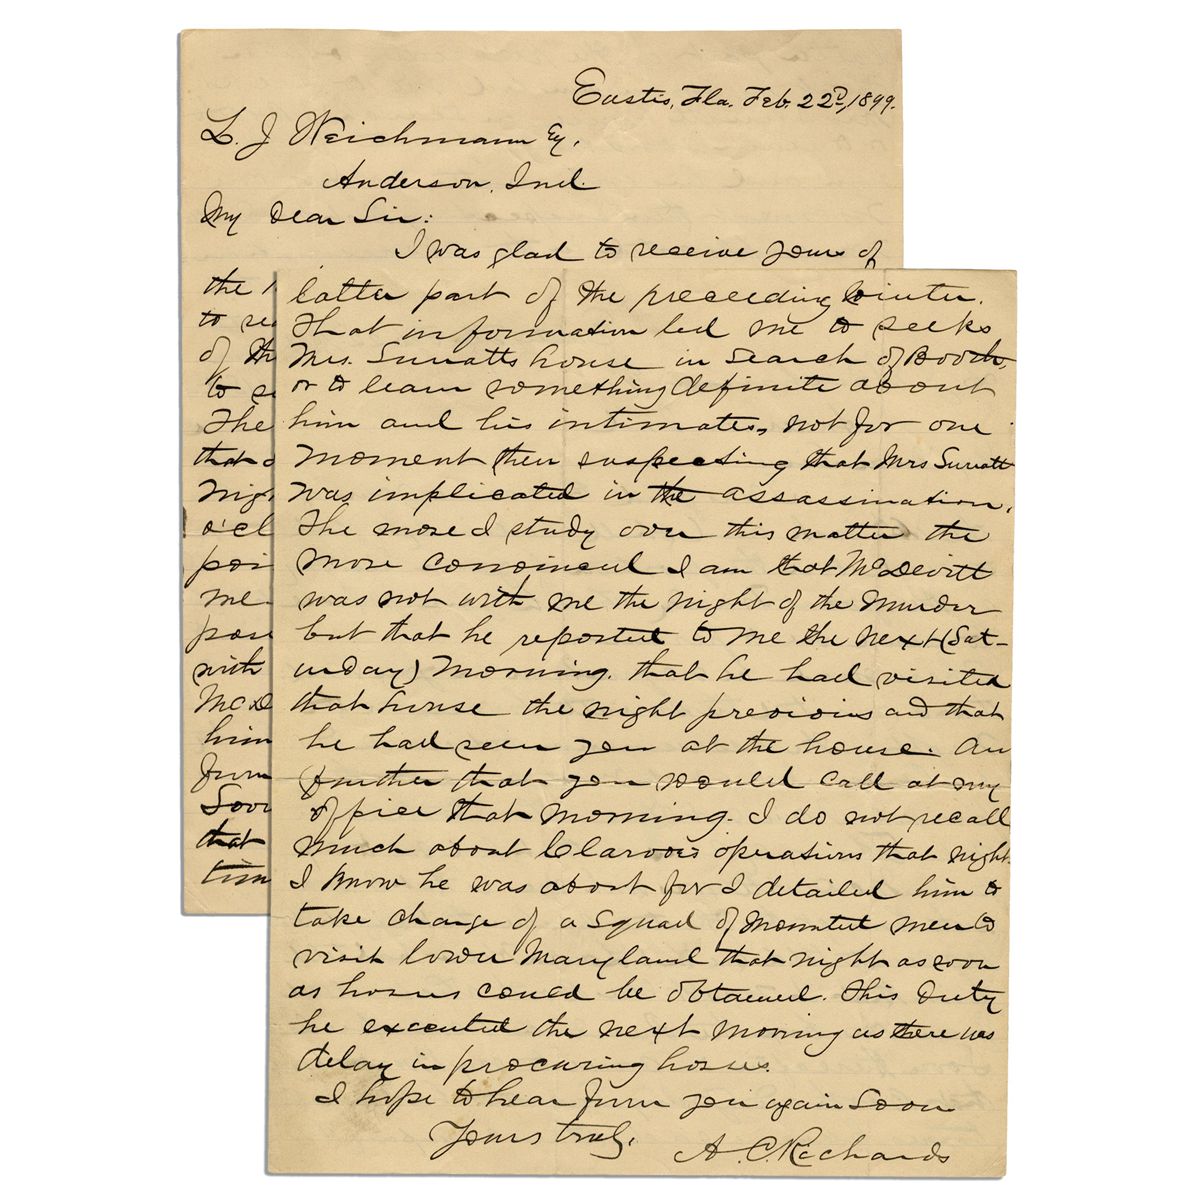 Eustis, Fla. Feb. 22d, 1899.
L. J Weichmann Esq.
Anderson, Ind.
My Dear Sir:
I was glad to receive yours of
the
to
of
to
The
that
nigh
o'cl
poi
me
pos
with
McD
him
from
Soon
that
tim
latter part of the preceeding Winter.
That information led me to seek
Mrs. Surratts house in search of Booth,
or to learn something definite about
him and his intimates, not for one
moment then suspecting that Mrs Surratt
was implicated in the assassination.
The more I study over this matter the
more convinced I am that McDevitt
was not with me the night of the murder
but that he reported to me the next (Sat-
urday) morning. that he had visited
that house the night previous and that
he had seen you at the house. An
further that you would call at my
office that morning. I do not recall
much about Clarvoes operations that night.
I know he was about for I detailed him to
take charge of a squad of mounted men to
visit lower Maryland that night as soon
as horses could be obtained. This duty
he executed the next morning as there was
delay in procuring horses.
I hope to hear from you again soon
Yours truly,
A. C. Richards